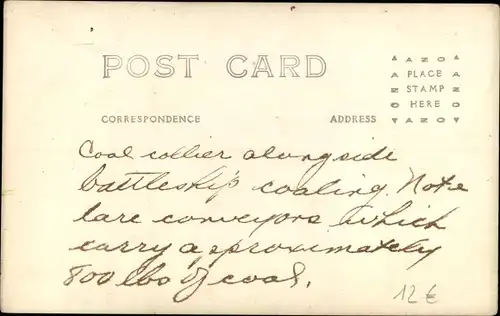 POST CARD
AZO
PLACE
STAMP
HERE
AZO
CORRESPONDENCE
ADDRESS
Coal collier alongside
battleship coaling. Note
lare conveyors which
carry approximately
800 lbs of coal.
12 €